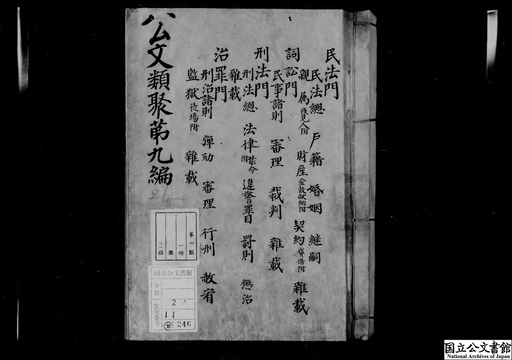 公文類聚第九編
民法門
民法総 戸籍 婚姻 継嗣
親属後見人附 財産 契約 雑載
詞訟門
民事諸則 審理 裁判 雑載
刑法門
刑法総 法律 違警罪目 罰則 懲治
雑載
治罪門
刑治諸則 弾劾 審理 行刑 赦宥
監獄 雑載
国立公文書館
分類
2
11
246
国立公文書館
National Archives of Japan